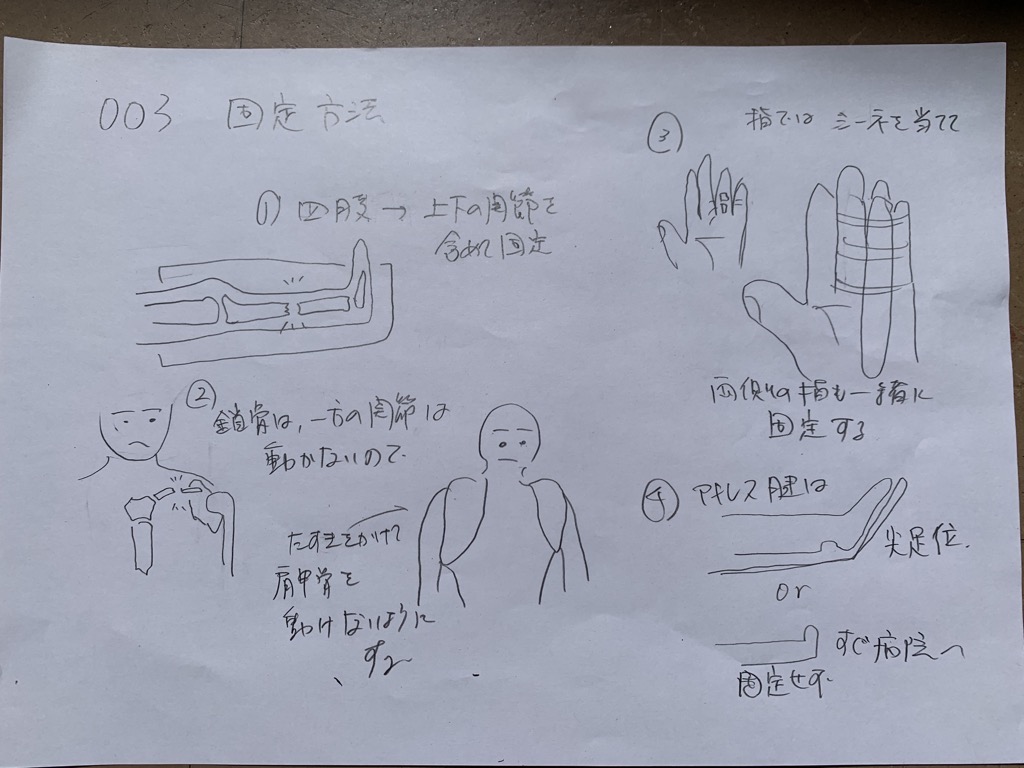 003 固定方法
① 四肢→上下の関節を
含めて固定
② 鎖骨は、一方の関節は
動かないので
たすきをかけて
肩甲骨を
動けないように
する
③ 指では シーネを当てて
両側の指も一緒に
固定する
④ アキレス腱は
尖足位.
or
すぐ病院へ
固定せず.